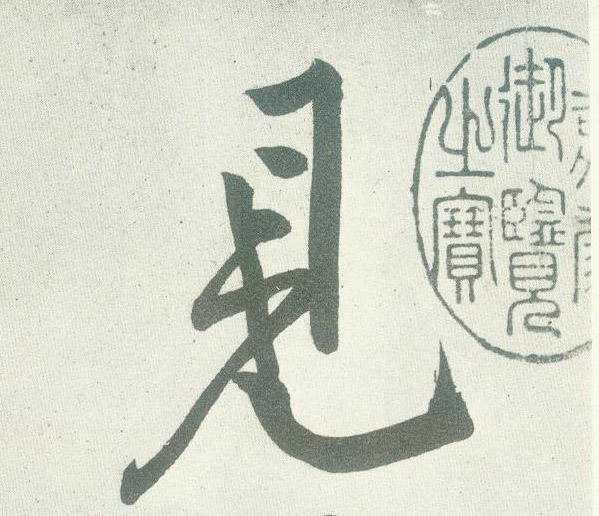 見
御覽
之寶